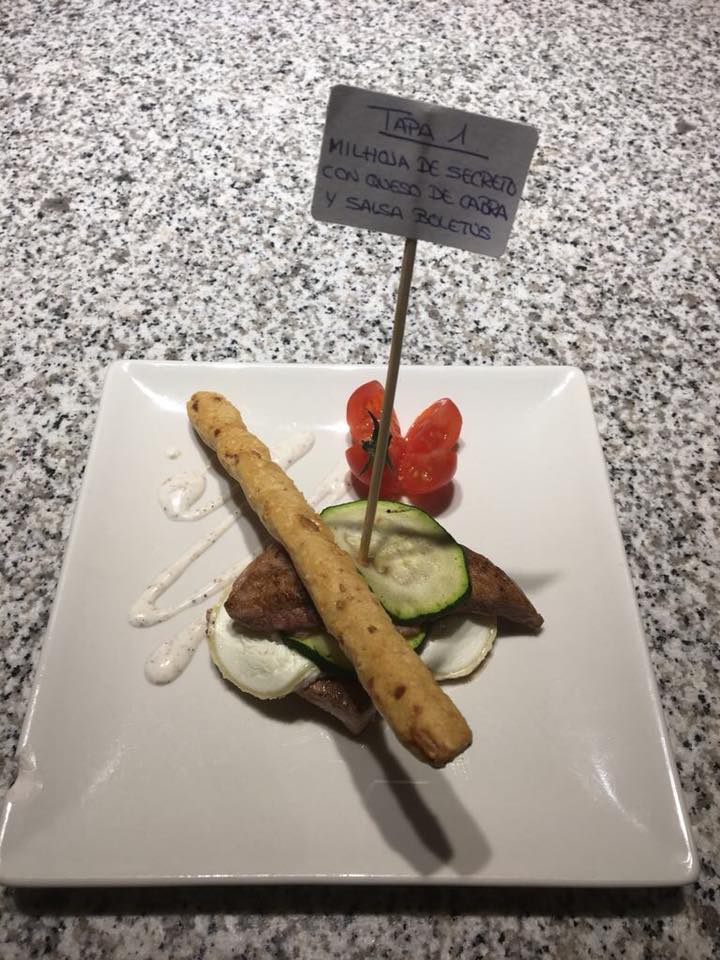 TAPA 1
MILHOJA DE SECRETO
CON QUESO DE CABRA
Y SALSA BOLETUS